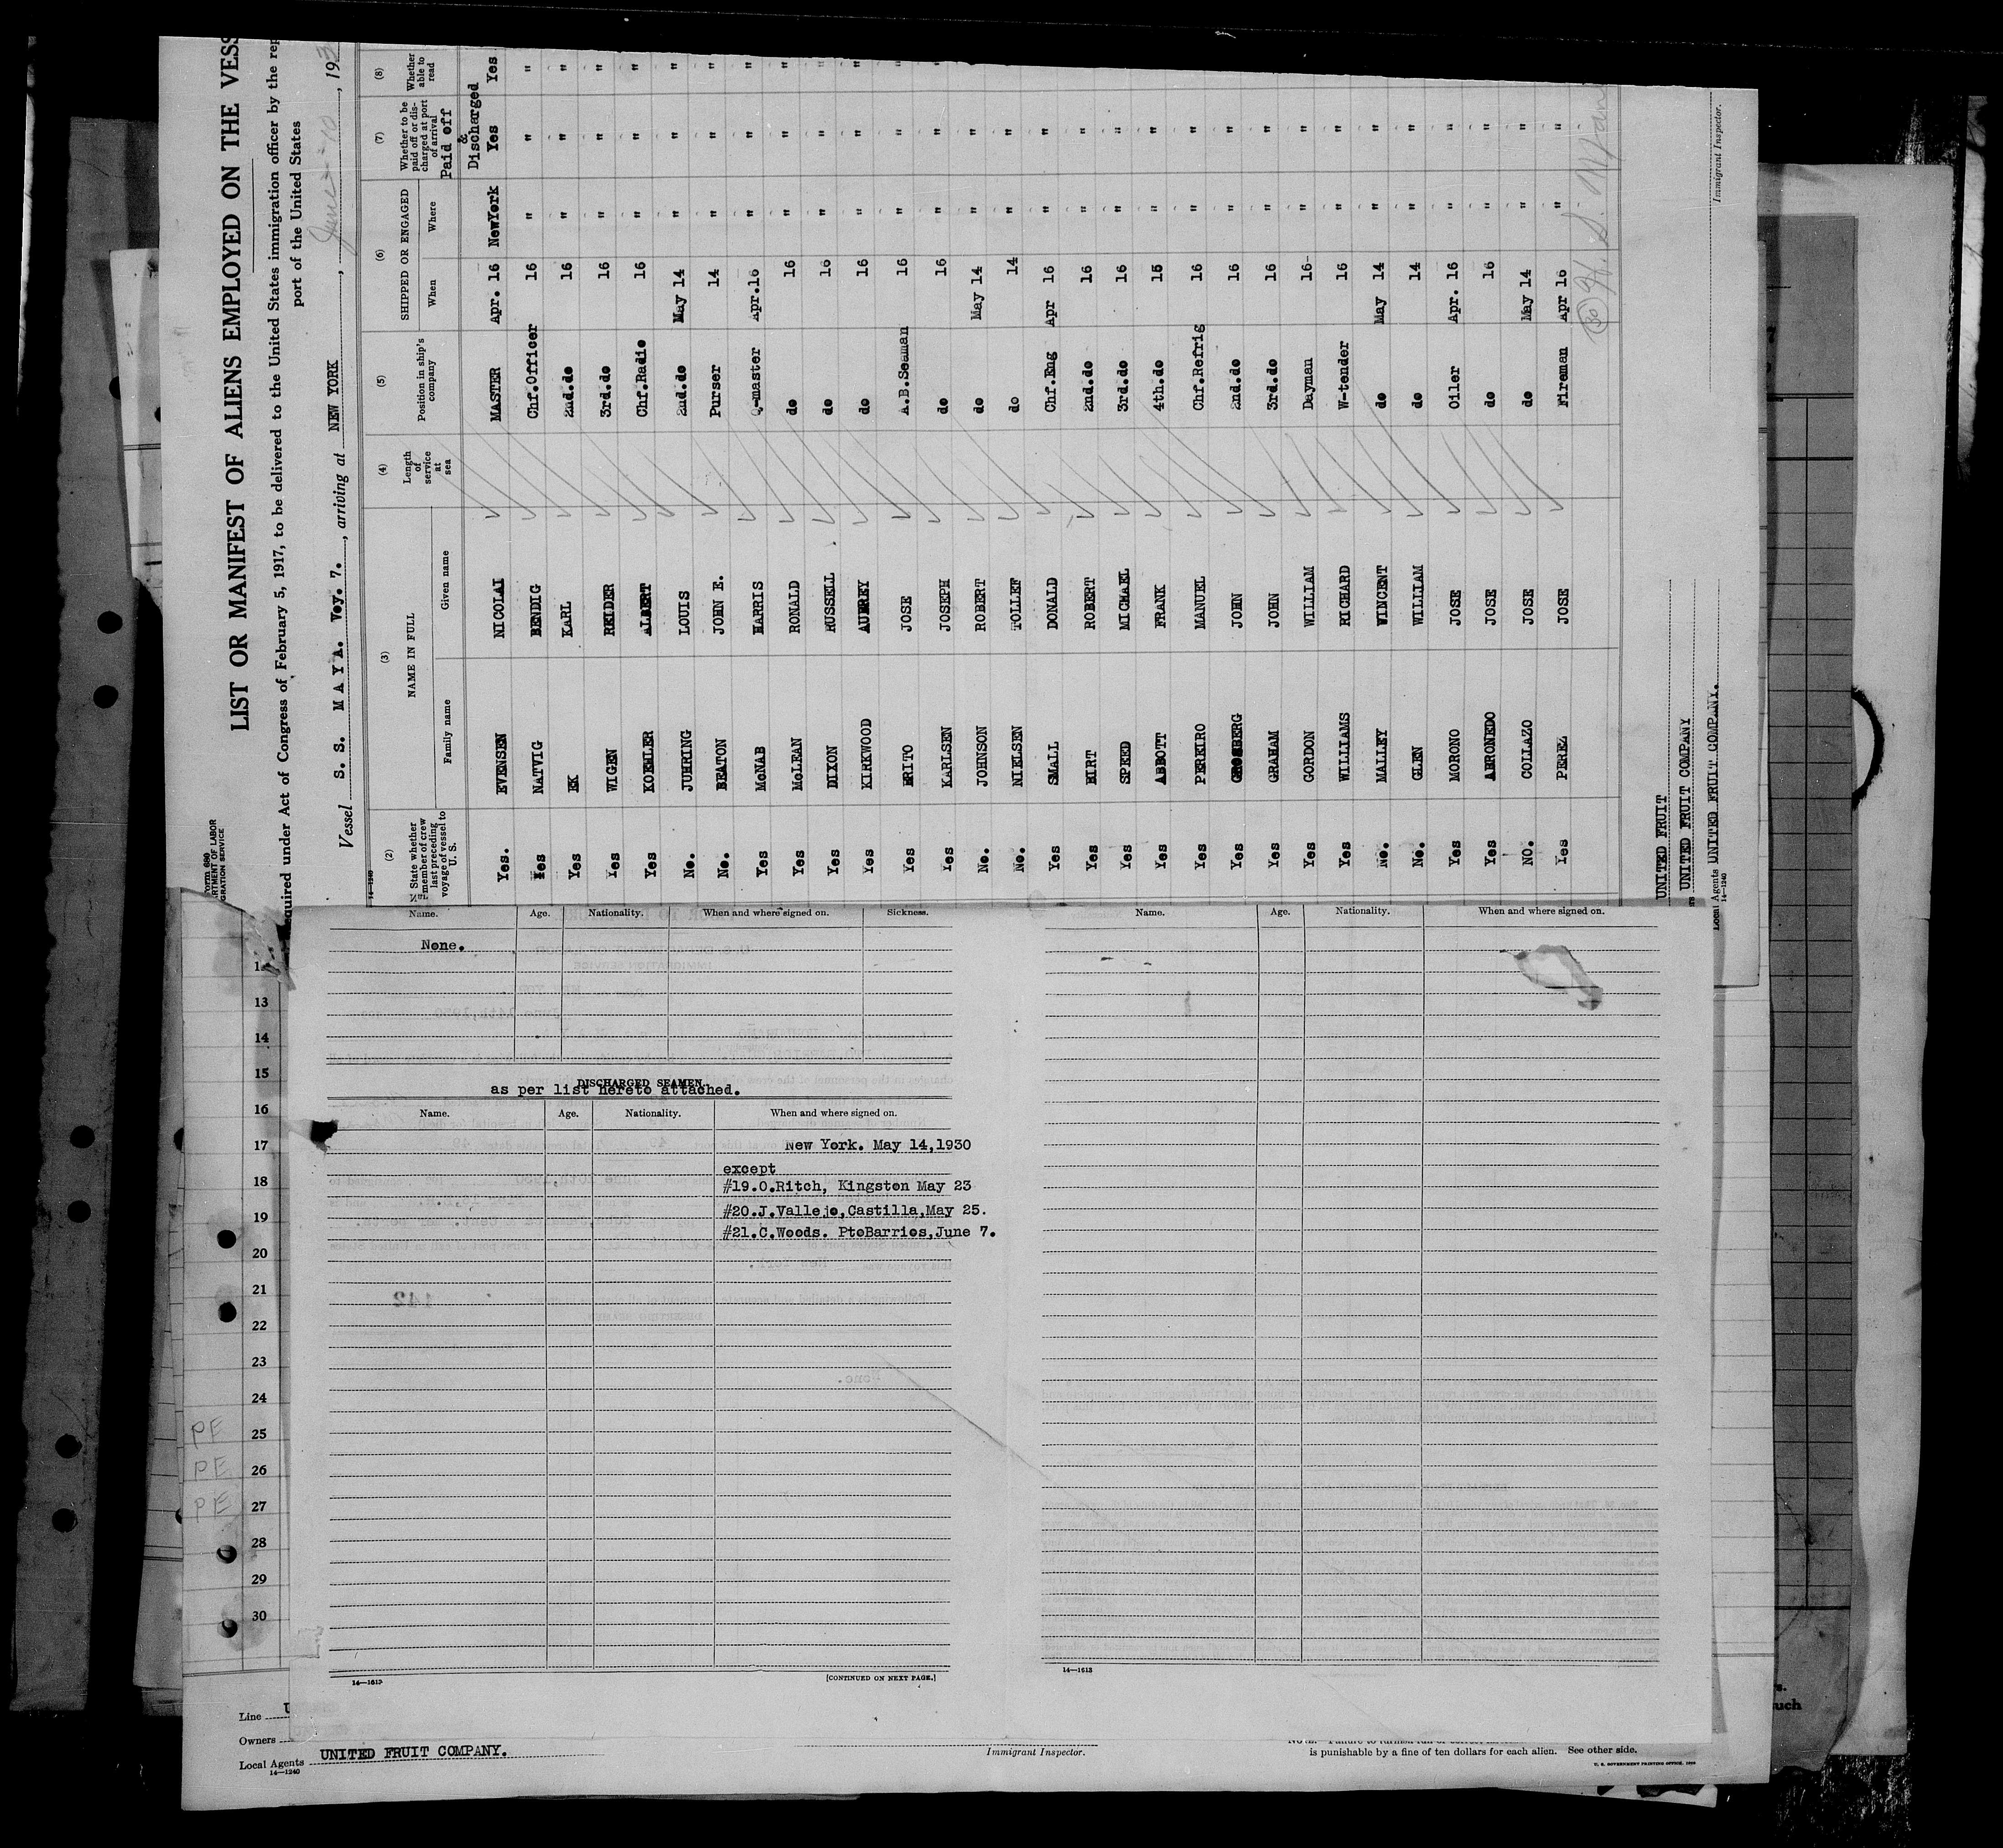 LIST OR MANIFEST OF ALIENS EMPLOYED ON THE VESS
equired under Act of Congress of February 5, 1917, to be delivered to the United States immigration officer by the rep
port of the United States
Vessel S. S. M A Y A. Voy. 7. , arriving at NEW YORK , June 10 , 193
(2) (3) (4) (5) (6) (7) (8)
State whether member of crew last preceding voyage of vessel to U. S. NAME IN FULL Length of service at sea Position in ship's company SHIPPED OR ENGAGED Whether to be paid off or discharged at port of arrival Whether able to read
Family name Given name When Where Paid off & Discharged
Yes. EVENSEN NICOLAI MASTER Apr. 16 NewYork Yes Yes
Yes NATVIG BENDIG Chf.Officer 16 " " "
Yes EK KARL 2nd.do 16 " " "
Yes WIGEN REIDER 3rd.do 16 " " "
Yes KOEHLER ALBERT Chf.Radio 16 " " "
No. JUHRING LOUIS 2nd.do May 14 " " "
No. BEATON JOHN E. Purser 14 " " "
Yes McNAB HARRIS Q-master Apr.16 " " "
Yes McLEAN RONALD do 16 " " "
Yes DIXON RUSSELL do 16 " " "
Yes KIRKWOOD AUBREY do 16 " " "
Yes BRITO JOSE A.B.Seaman 16 " " "
Yes KARLSEN JOSEPH do 16 " " "
No. JOHNSON ROBERT do May 14 " "
No. NIELSEN TOLLEF do 14 " "
Yes SMALL DONALD Chf.Eng Apr 16 " "
Yes BIRT ROBERT 2nd.do 16 " "
Yes SPEED MICHAEL 3rd.do 16 " "
Yes ABBOTT FRANK 4th.do 15 " "
Yes PEREIRO MANUEL Chf.Refrig 16 " "
Yes GROSBERG JOHN 2nd.do 16 " "
Yes GRAHAM JOHN 3rd.do 16 " "
Yes GORDON WILLIAM Dayman 16 " "
Yes WILLIAMS RICHARD W-tender 16 " "
No. MALLEY WINCENT do May 14 " "
No. GLEN WILLIAM do 14 " "
Yes MORONO JOSE Oiler Apr. 16 " "
Yes ABRONEDO JOSE do 16 " "
NO. COLLAZO JOSE do May 14 " "
Yes PEREZ JOSE Fireman Apr 16 " "
30
UNITED FRUIT
UNITED FRUIT COMPANY
Local Agents UNITED FRUIT COMPANY.
14—1240
Immigrant Inspector.
Name. Age. Nationality. When and where signed on. Sickness.
None.
DISCHARGED SEAMEN.
as per list hereto attached.
Name. Age. Nationality. When and where signed on.
New York. May 14,1930
except
#19.O.Ritch, Kingston May 23
#20.J.Vallejo,Castilla,May 25.
#21.C.Woods. PtoBarrios,June 7.
14—1613
[CONTINUED ON NEXT PAGE.]
Name. Age. Nationality. When and where signed on.
14—1613
13
14
15
16
17
18
19
20
21
22
23
24
PE 25
PE 26
PE 27
28
29
30
Line
Owners
Local Agents UNITED FRUIT COMPANY.
14—1240
Immigrant Inspector.
is punishable by a fine of ten dollars for each alien. See other side.
U. S. GOVERNMENT PRINTING OFFICE